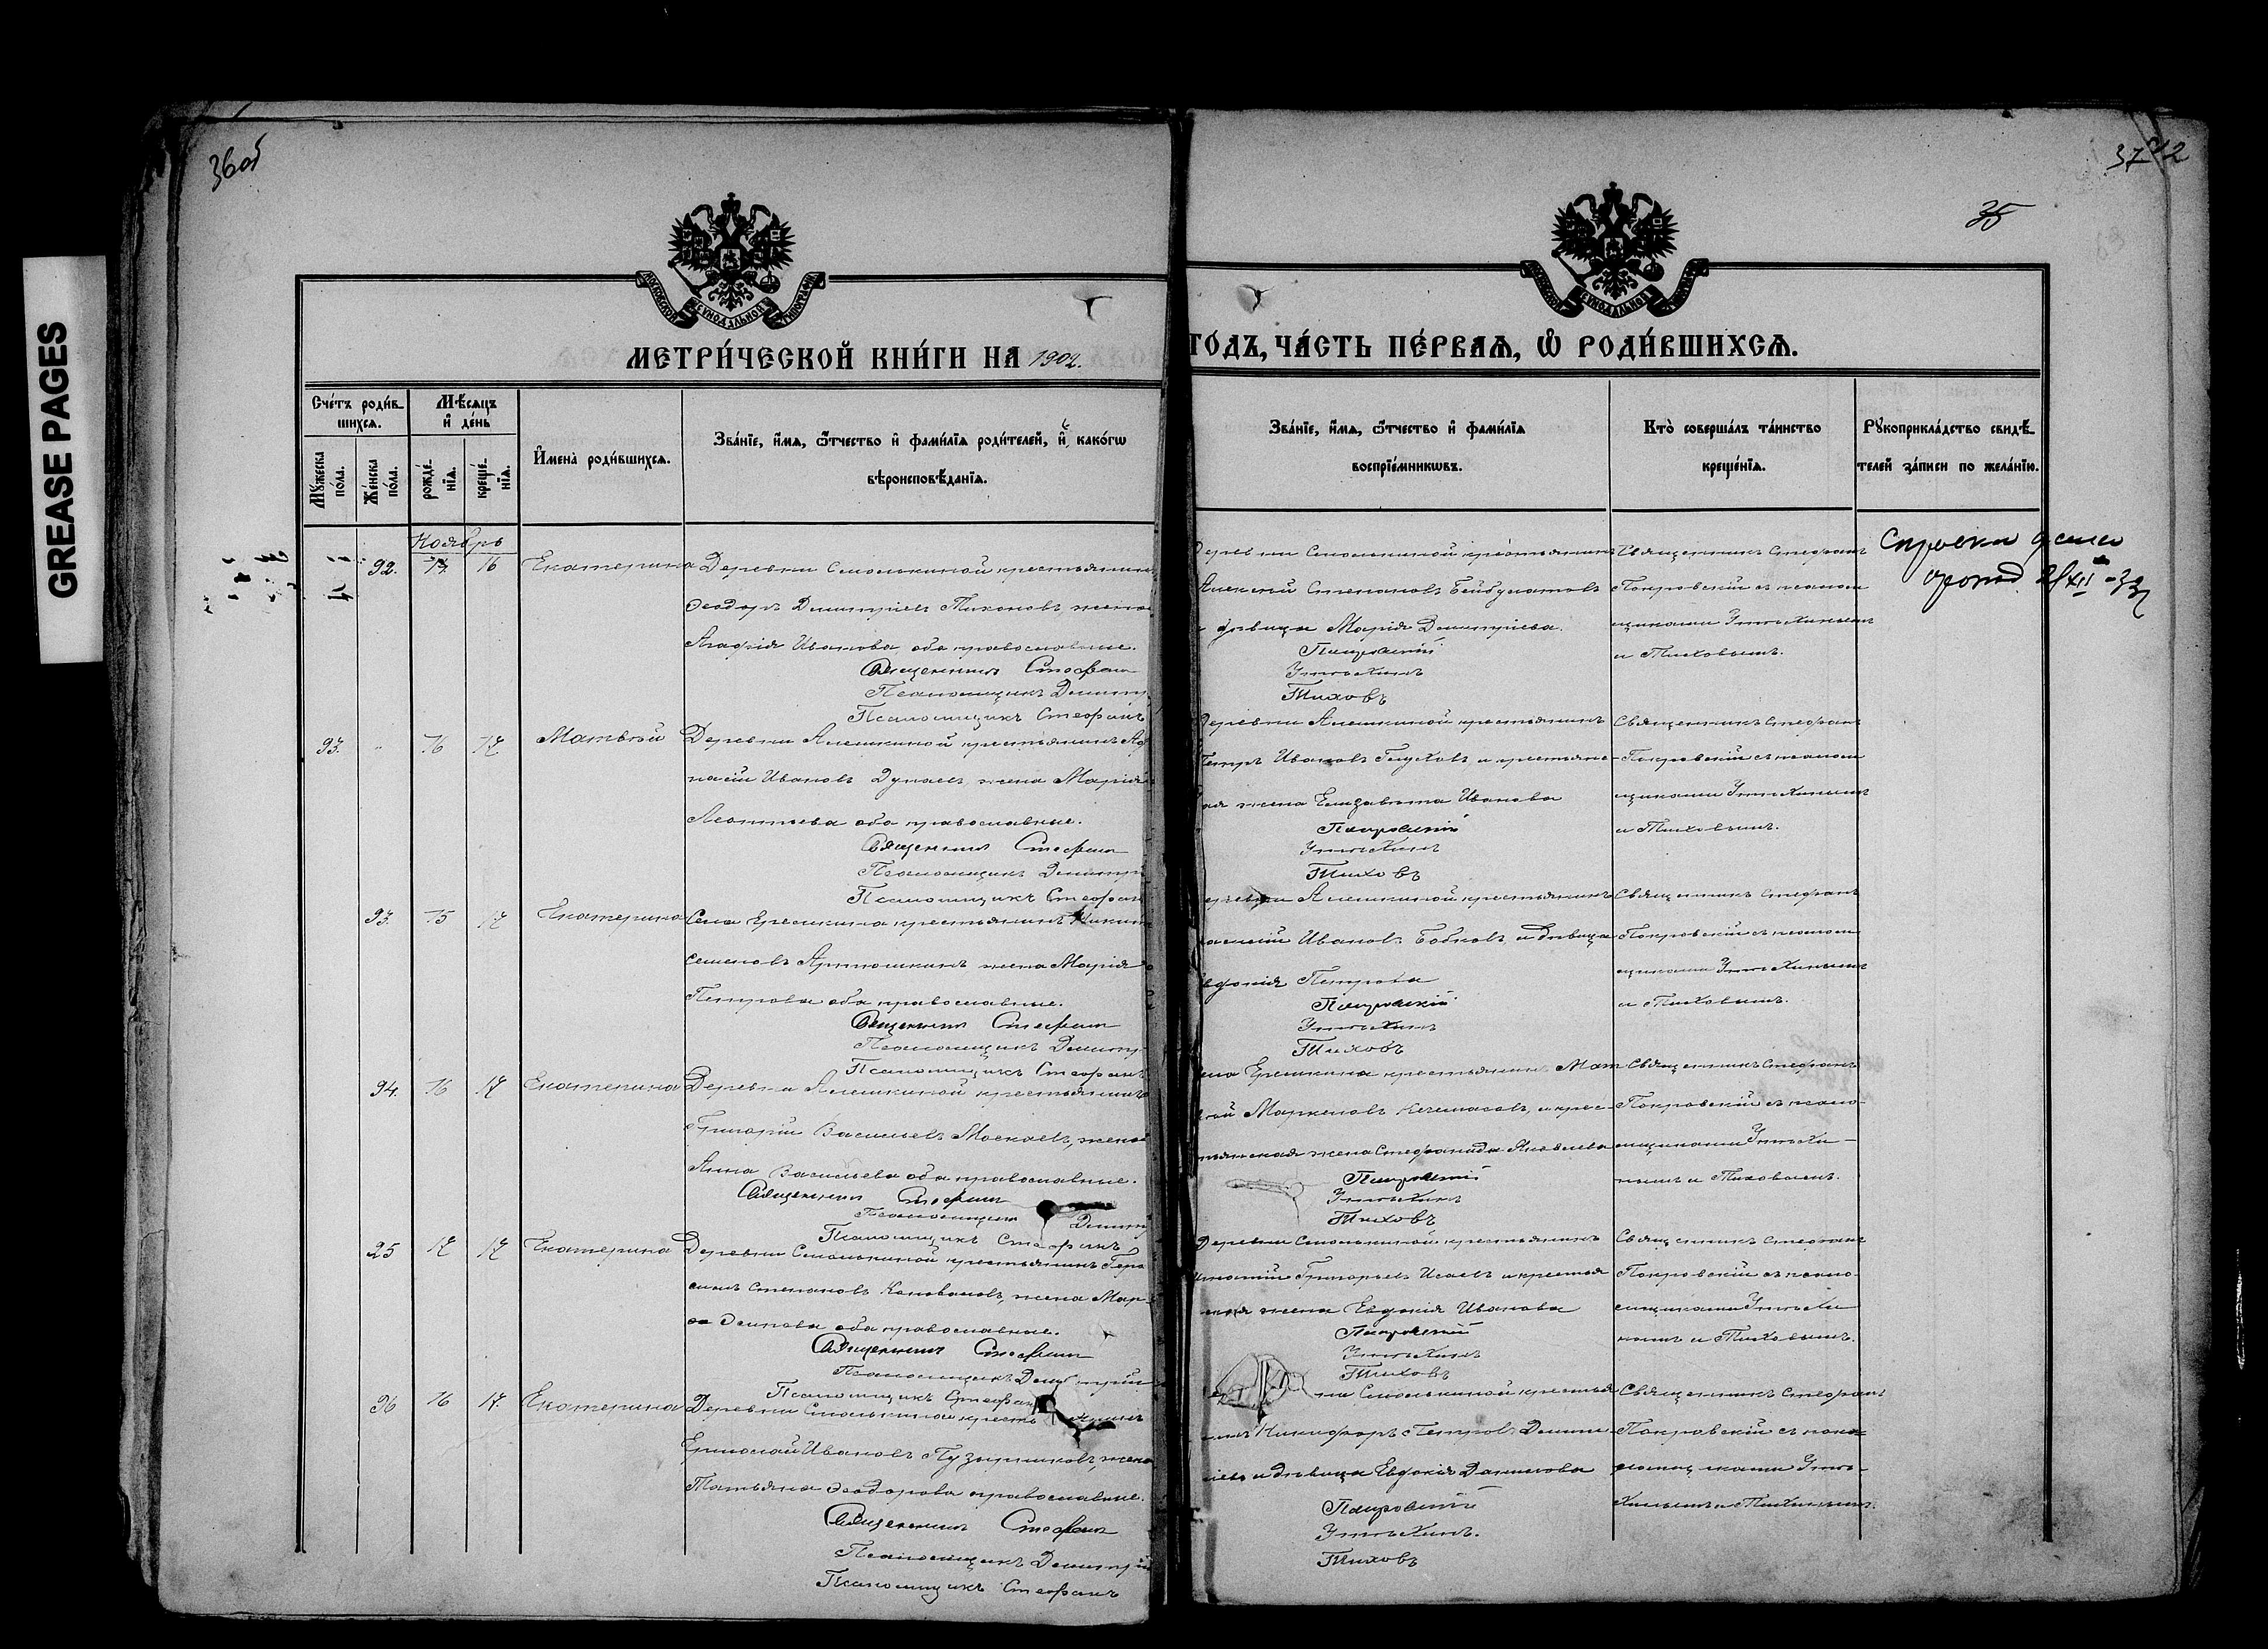 GREASE PAGES
36об
37
35
МОСКОВСКОЙ СѴНОДАЛЬНОЙ ТИПОГРАФІИ
МОСКОВСКОЙ СѴНОДАЛЬНОЙ ТИПОГРАФІИ
МЕТРИ́ЧЕСКОЙ КНИ́ГИ НА 1902.
ГОДЪ, ЧА́СТЬ ПЕ́РВАѦ, Ѡ РОДИ́ВШИХСѦ.
Сче́тъ роди́в-
шихсѧ.
Мꙋ́жеска по́ла.
Же́нска по́ла.
Мѣ́сѧцъ
и де́нь
рожде́-
нїѧ.
креще́-
нїѧ.
И҆мена̀ роди́вшихсѧ.
Зва́нїе, и҆́мѧ, ѻ҆́тчество и҆ фами́лїѧ роди́телей, и҆ како́гѡ
вѣроисповѣ́данїѧ.
Зва́нїе, и҆́мѧ, ѻ҆́тчество и҆ фами́лїѧ
воспрїе́мникѡвъ.
Кто̀ соверша́лъ та́инство
креще́нїѧ.
Рꙋкоприкла́дство свидѣ́-
телей за́писи по жела́нїю.
Ноябрь
92. 16 Екатерина
Деревни Смолькиной крестьянинъ
Ѳеодоръ Димитріевъ Тихоновъ, жена
Агафія Иванова, оба православные.
Священникъ Стефанъ
Псаломщикъ Димитр
Псаломщикъ Стефанъ
Деревни Смолькиной крестьянинъ
Алексей Степановъ Байбулатовъ
и дѣвица Марія Димитріева.
Покровскій
Утѣхинъ
Тиховъ
Священникъ Стефанъ
Покровскій съ псалом
щиками Утѣхинымъ
и Тиховымъ.
93. " 16 17 Матвѣй
Деревни Алешкиной крестьянинъ Аѳ
насій Ивановъ Дунаевъ, жена Марія
Леонтьева оба православные.
Священникъ Стефанъ
Псаломщикъ Димитрі
Псаломщикъ Стефанъ
Деревни Алешкиной крестьянинъ
Петръ Ивановъ Глуховъ и крестьянс-
кая жена Елизавета Иванова
Покровскій
Утѣхинъ
Тиховъ
Священникъ Стефанъ
Покровскій съ псалом
щиками Утѣхинымъ
и Тиховымъ.
93. 15 17 Екатерина
Села Ерешкина крестьянинъ Никит
Семеновъ Артюшкинъ жена Марія
Петрова оба православные.
Священникъ Стефанъ
Псаломщикъ Димитр
Псаломщикъ Стефанъ
Деревни Алешкиной крестьянинъ
Ивановъ Бобковъ и дѣвица
Евдокія Петрова
Покровскій
Утѣхинъ
Тиховъ
Священникъ Стефанъ
Покровскій съ псалом
щиками Утѣхинымъ
и Тиховымъ.
94. 16 17 Екатерина
Деревни Алешкиной крестьянинъ
Григорій Васильевъ Москаевъ, жена
Анна Васильева оба православные.
Священникъ Стефанъ
Псаломщикъ Димитр
Псаломщикъ Стефанъ
Села Ерешкина крестьянинъ Мат
вѣй Маркеловъ и крес-
тьянская жена Стефанида Яковлева
Покровскій
Утѣхинъ
Тиховъ
Священникъ Стефанъ
Покровскій съ псало-
мщиками Утѣхи-
нымъ и Тиховымъ.
95 17 17 Екатерина
Деревни Смолькиной крестьянинъ Гера
симъ Степановъ Коноваловъ, жена Мар-
ѳа Осипова оба православные.
Священникъ Стефанъ
Псаломщикъ Димитрій
Псаломщикъ Стефанъ
Деревни Смолькиной крестьянинъ
Игнатій Григорьевъ Исаевъ и крестьян
ская жена Евдокія Иванова
Покровскій
Утѣхинъ
Тиховъ
Священникъ Стефанъ
Покровскій съ псало-
мщиками Утѣхи
нымъ и Тиховымъ.
96 16 17. Екатерина
Деревни Смолькиной крестьянинъ
Ермолай Ивановъ Пузырниковъ, жена
Татьяна Ѳеодорова православные.
Священникъ Стефанъ
Псаломщикъ Димитрій
Псаломщикъ Стефанъ
ни Смолькиной крестья
нинъ Никифоръ Петровъ Димит
ріевъ и дѣвица Евдокія Данилова
Покровскій
Утѣхинъ.
Тиховъ
Священникъ Стефанъ
Покровскій съ псал
омщиками Утѣ-